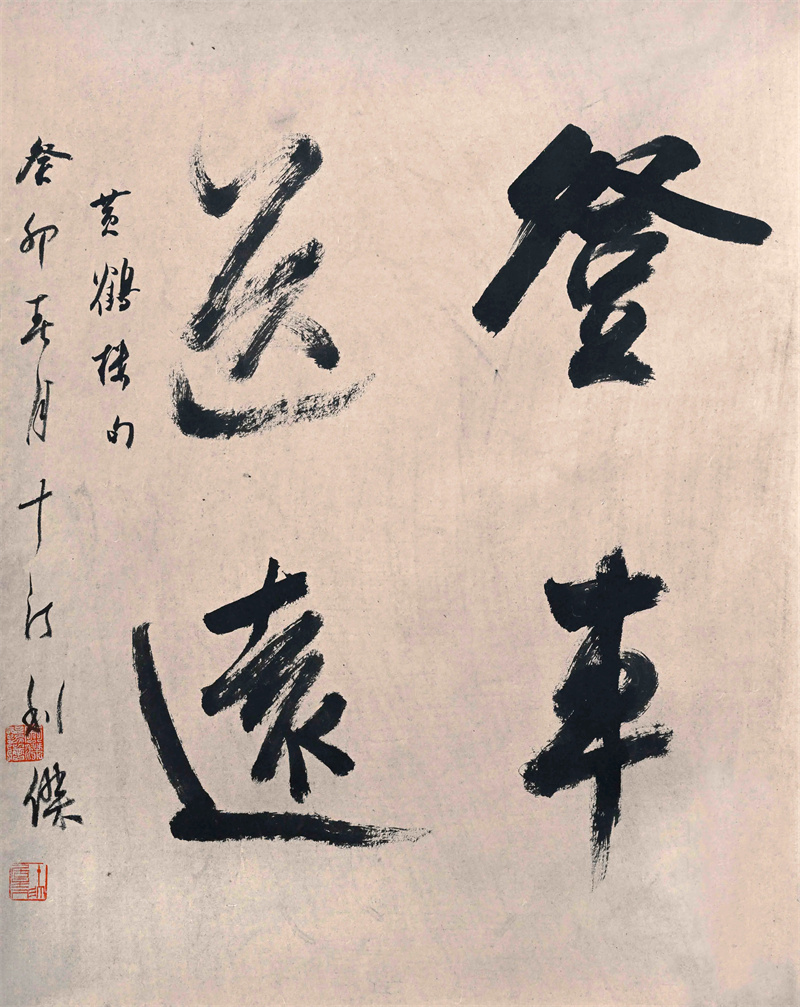 登車
送遠
黄鶴樓句
癸卯春月十 傑